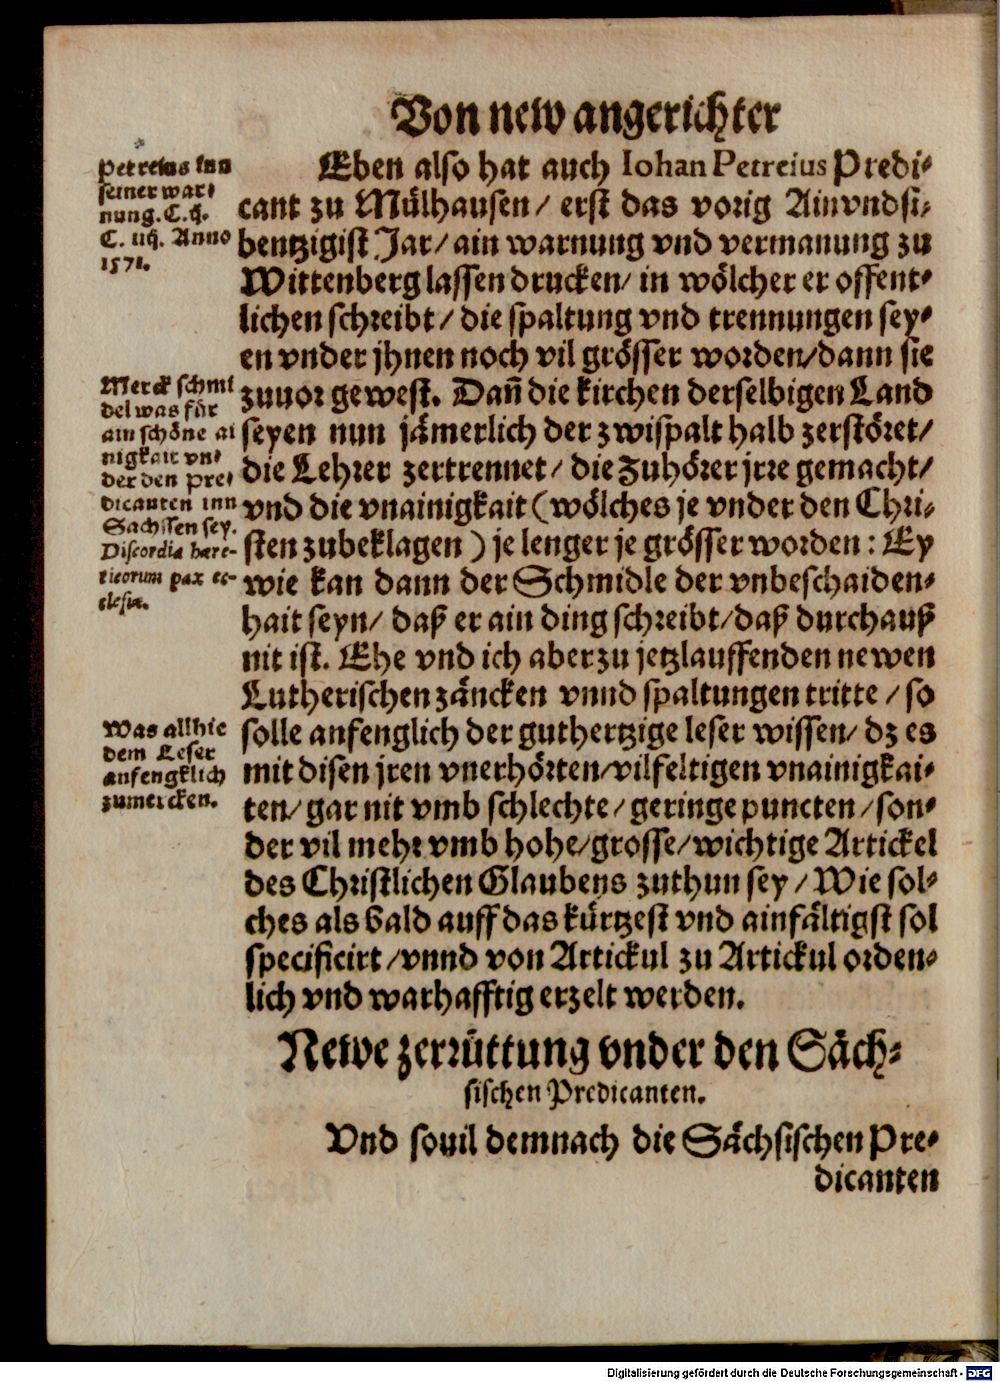 Von new angerichter
Petreius inn
seiner war-
nung. C. ij.
C. iiij. Anno
1571.
Eben also hat auch Iohan Petreius Predi-
cant zu Mülhausen/ erst das vorig Ainvndsi-
bentzigist Jar/ ain warnung vnd vermanung zu
Wittenberg lassen drucken/ in wölcher er offent-
lichen schreibt/ die spaltung vnd trennungen sey-
en vnder jhnen noch vil grösser worden/dann sie
zuuor gewest. Dañ die kirchen derselbigen Land
seyen nun jämerlich der zwispalt halb zerstöret/
die Lehrer zertrennet/ die Zuhörer jrre gemacht/
vnd die vnainigkait (wölches je vnder den Chri-
sten zubeklagen) je lenger je grösser worden: Ey
wie kan dann der Schmidle der vnbeschaiden-
hait seyn/ daß er ain ding schreibt/daß durchauß
nit ist. Ehe vnd ich aber zu jetzlauffenden newen
Lutherischen zäncken vnnd spaltungen tritte/ so
solle anfenglich der guthertzige leser wissen/ dz es
mit disen jren vnerhörten/vilfeltigen vnainigkai-
ten/ gar nit vmb schlechte/ geringe puncten/son-
der vil mehr vmb hohe/grosse/wichtige Artickel
des Christlichen Glaubens zuthun sey/ Wie sol-
ches als bald auff das kürtzest vnd ainfältigst sol
specificirt/vnnd von Artickul zu Artickul orden-
lich vnd warhafftig erzelt werden.
Merck schmi
del was für
ain schöne ai
nigkait vn-
der den Pre-
dicanten inn
Sachssen sey.
Discordia hære-
ticorum pax ec-
clesiæ.
Was allhie
dem Leser
anfengklich
zumercken.
Newe zerrüttung vnder den Säch-
sischen Predicanten.
Vnd souil demnach die Sächsischen Pre-
dicanten
Digitalisierung gefördert durch die Deutsche Forschungsgemeinschaft - DFG